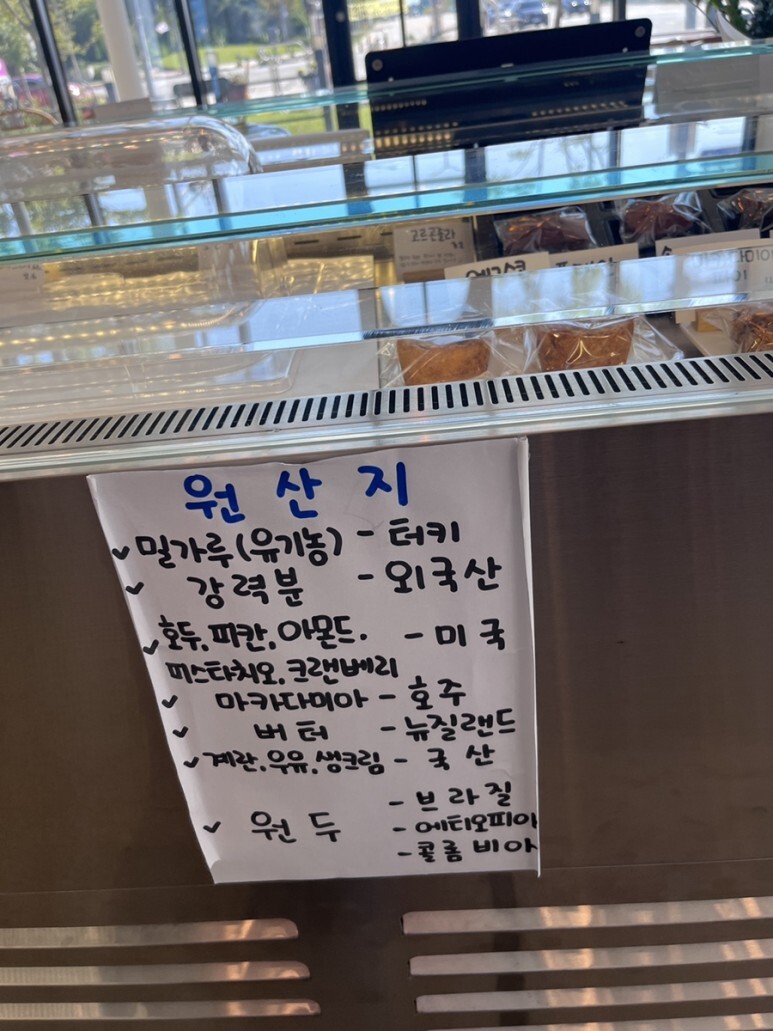 고르곤졸라
원산지
✓ 밀가루(유기농) - 터키
✓ 강력분 - 외국산
✓ 호두, 피칸, 아몬드. - 미국
피스타치오, 크랜베리
✓ 마카다미아 - 호주
✓ 버터 - 뉴질랜드
✓ 계란, 우유, 생크림 - 국산
✓ 원두 - 브라질
- 에티오피아
- 콜롬비아